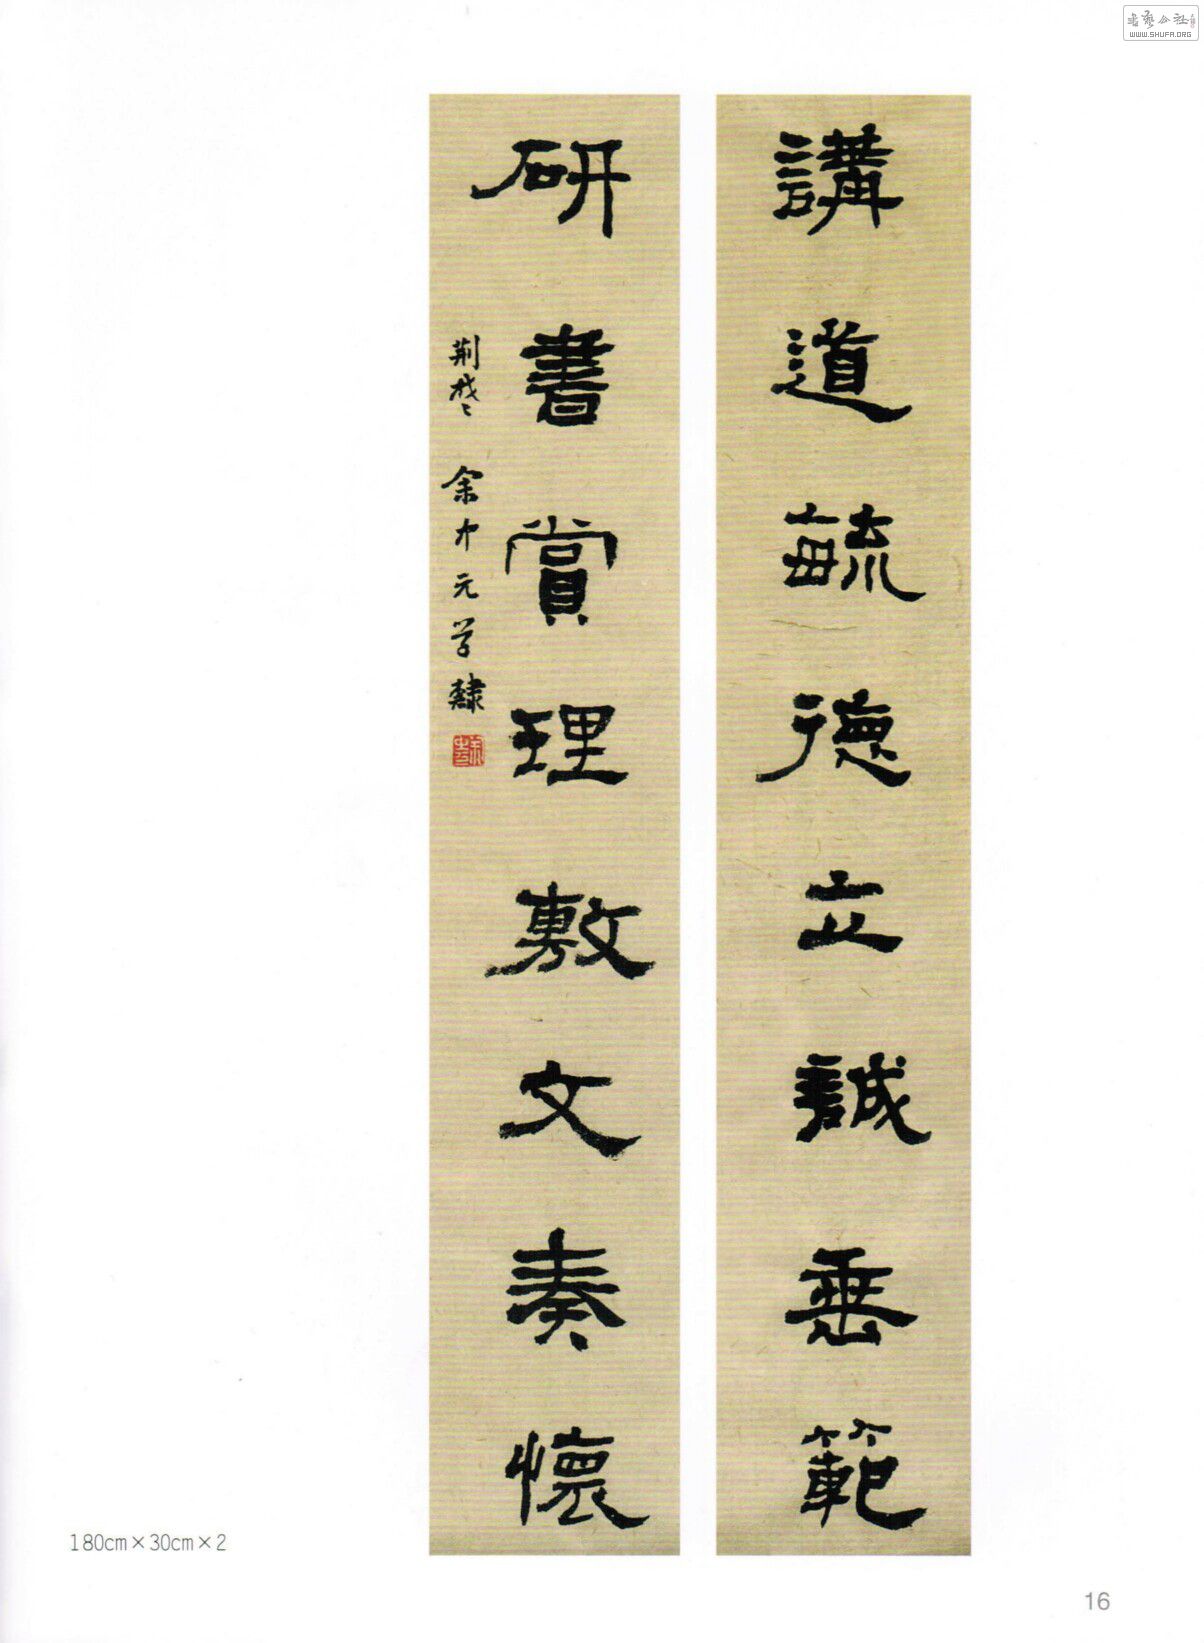 書藝公社
WWW.SHUFA.ORG
講道毓德立誠垂範
研書賞理敷文奏懷
荆楚 余中元学隸
180cm×30cm×2
16